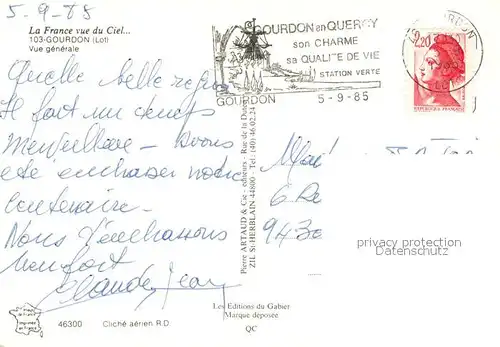 5-9-85
La France vue du Ciel...
103-GOURDON (Lot)
Vue générale
Quelle belle région
Il fait un temps
Merveilleux - Avons
été enchaser notre
Centenaire -
Nous t'embrassons
bien fort
Claude Jean
46300 Cliché aérien R.D.
GOURDON en QUERCY
son CHARME
sa QUALITE DE VIE
STATION VERTE
GOURDON 5-9-85
2,20
Pierre ARTAUD & Cie - éditeurs - Rue de la
ZIL St-HERBLAIN 44800 - Tél. (40) 46.02.24
Les Editions du Gabier
Marque déposée
QC
6 Re
9430
privacy protection
Datenschutz